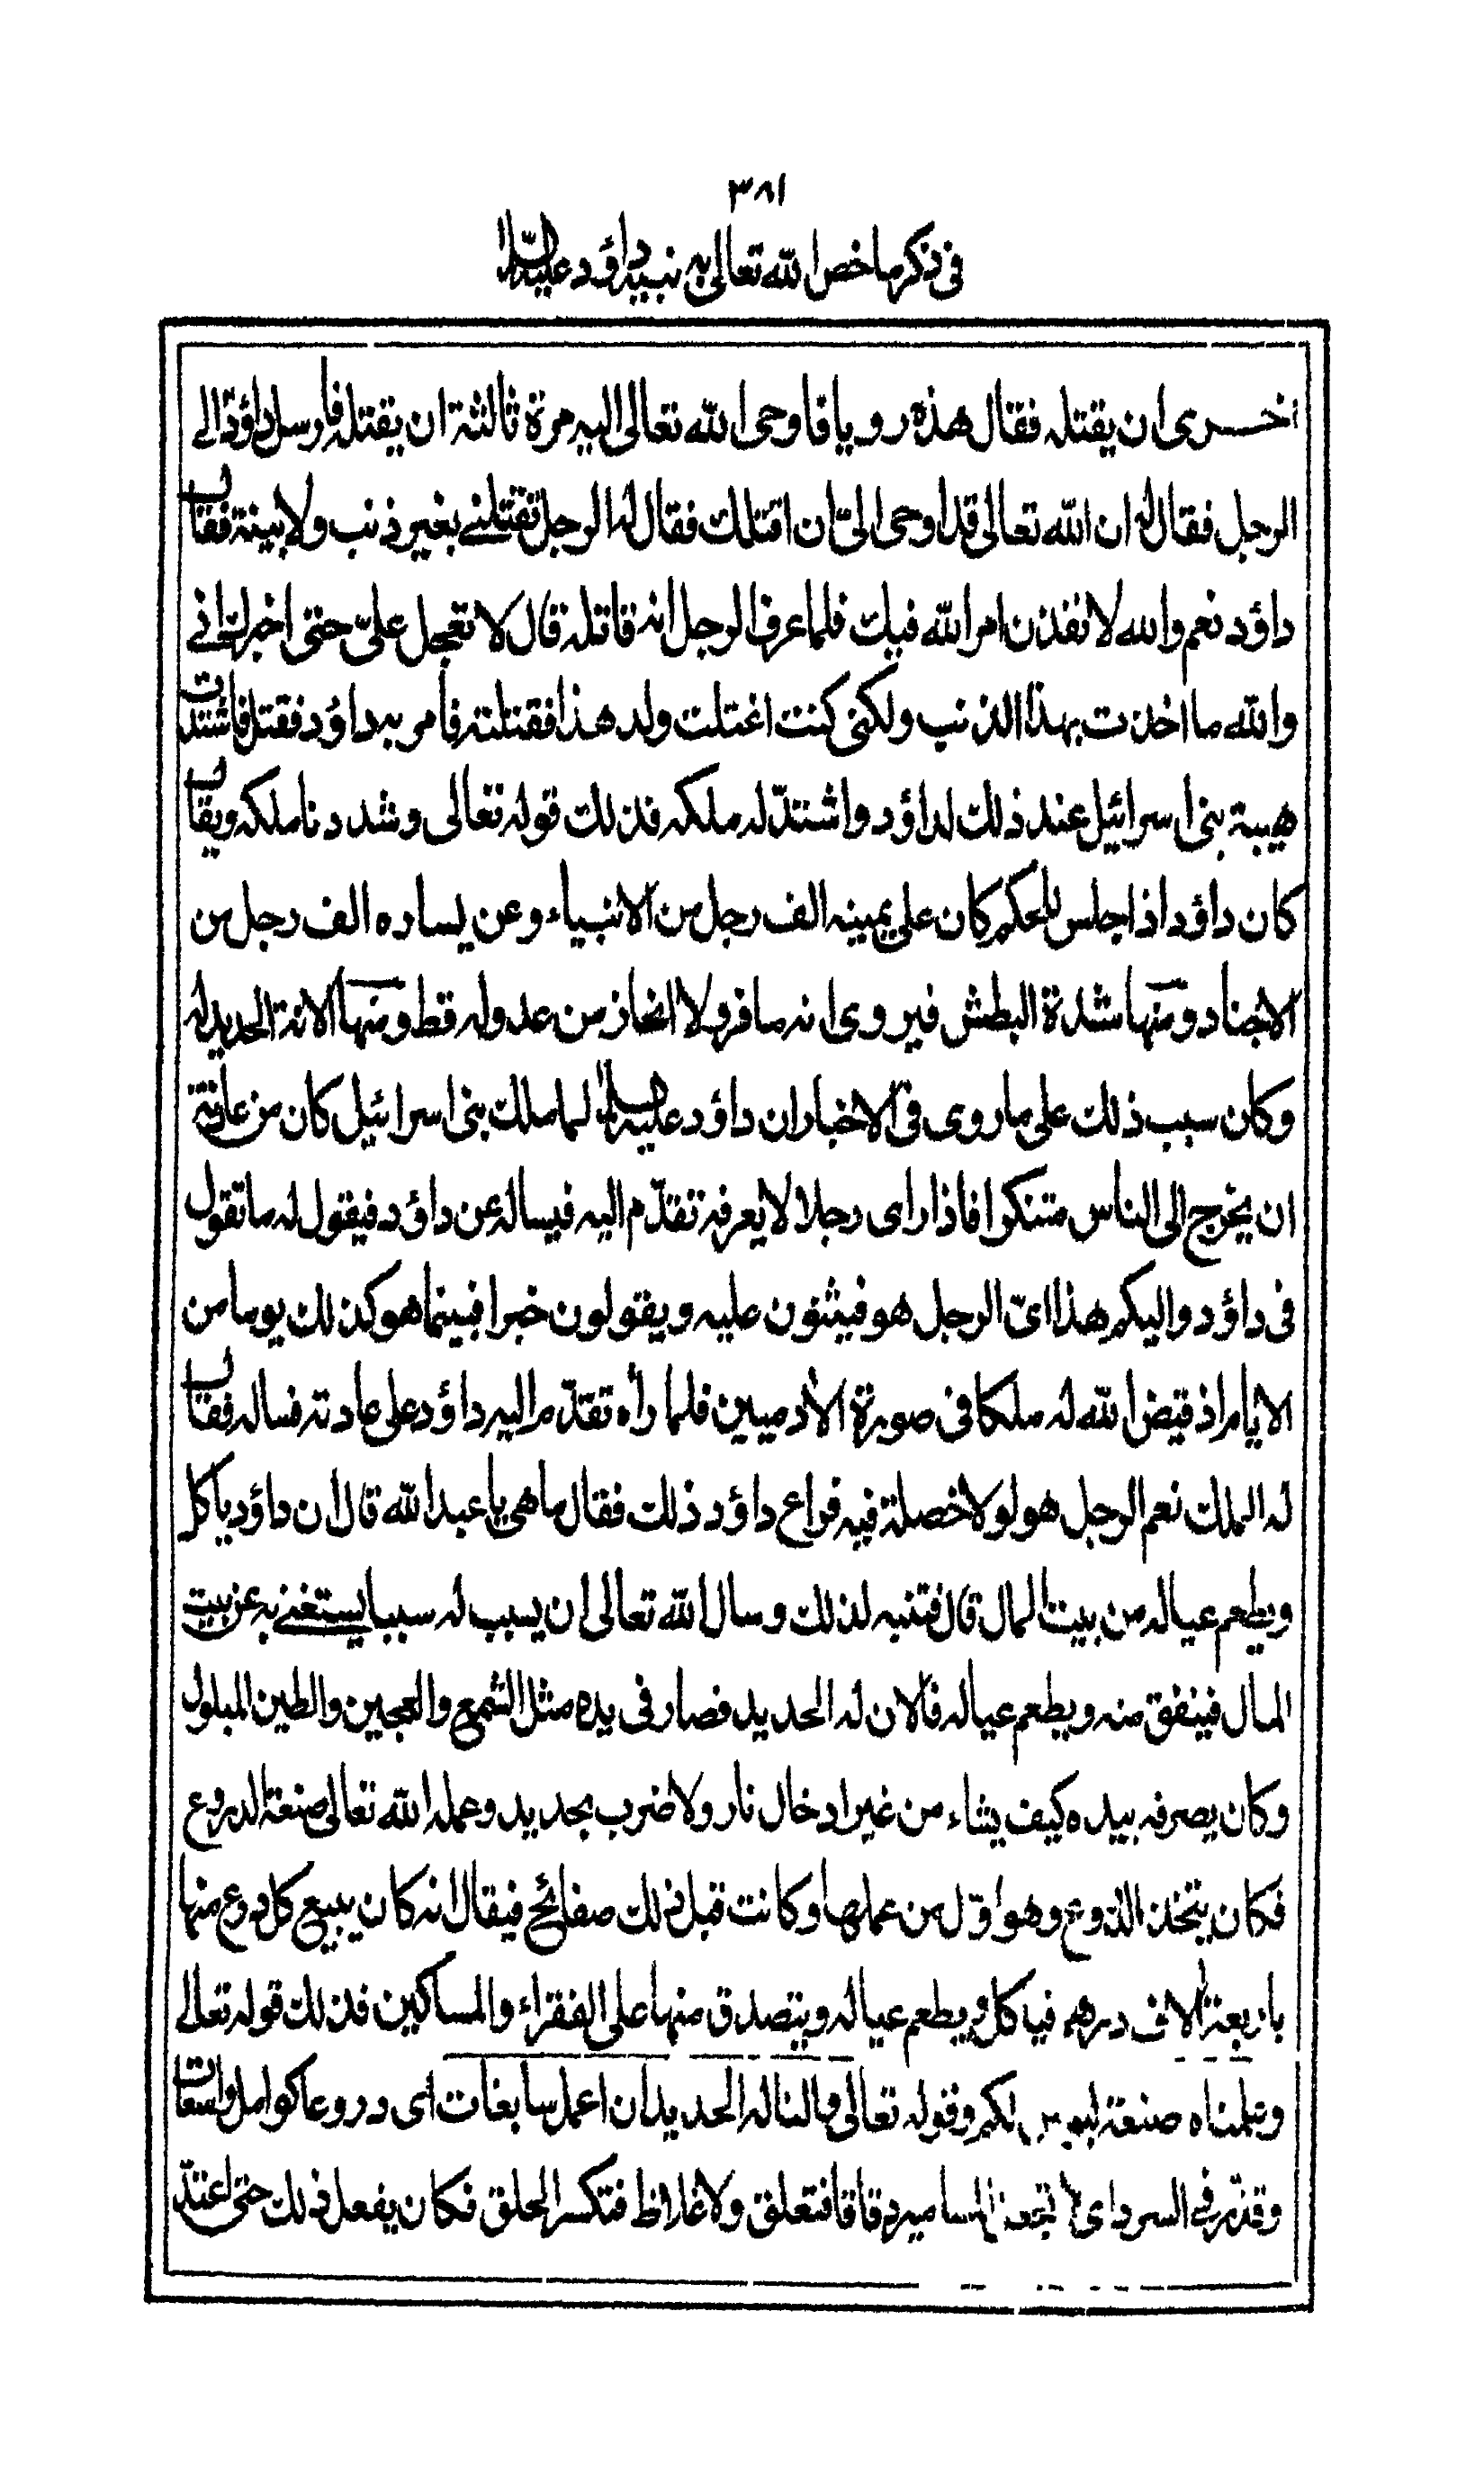 ٣٨١
فى ذكر ما خص الله تعالى به نبيه داؤد عليه السلام
اخرى ان يقتله فقال هذه رويا فاوحى الله تعالى اليه مرة ثالثة ان يقتله فارسل داؤد الى
الرجل فقال له ان الله تعالى قد اوحى الىّ ان اقتلك فقال له الرجل تقتلنے بغير ذنب ولا بينة فقال
داؤد نعم والله لا نفذن امر الله فيك فلما عرف الرجل انه قاتله قال لا تعجل علىّ حتى اخبرك انے
والله ما اخذت بهذا الذنب ولكنى كنت اغتلت ولد هذا فقتلته فأمر به داؤد فقتل فاشتدت
هيبة بنى اسرائيل عند ذلك لداؤد واشتدّ له ملكه فذلك قوله تعالى وشددنا ملكه ويقال
كان داؤد اذا جلس للحكم كان على يمينه الف رجل من الانبياء وعن يساره الف رجل من
الاجناد ومنها شدة البطش فيروى انه ما فر ولا انحاز من عدوله قط ومنها الانة الحديد له
وكان سبب ذلك على ما روى فى الاخبار ان داؤد عليه السلام لما ملك بنى اسرائيل كان من عادته
ان يخرج الى الناس متنكرا فاذا راى رجلا لا يعرفه تقدّم اليه فيساله عن داؤد فيقول له ما تقول
فى داؤد واليكم هذا اىّ الرجل هو فيثنون عليه ويقولون خيرا فبينما هو كذلك يوما من
الايام اذ قيض الله له ملكا فى صورة الادميين فلما رأه تقدّم اليه داؤد على عادته فساله فقال
له الملك نعم الرجل هو لولا خصلة فيه فراع داؤد ذلك فقال ما هى يا عبد الله قال ان داؤد ياكل
ويطعم عياله من بيت المال قال فتنبه لذلك وسال الله تعالى ان يسبب له سببا يستغنے به عن بيت
المال فينفق منه ويطعم عياله فالان له الحديد فصار فى يده مثل الشمع والعجين والطين المبلول
وكان يصرفه بيده كيف يشاء من غير ادخال نار ولا ضرب بحديد وعمله الله تعالى صنعة الدروع
فكان يتخذ الدروع وهو اوّل من عملها وكانت قبل ذلك صفائح فيقال انه كان يبيع كل درع منها
باربعة الاف درهم فياكل ويطعم عياله ويتصدق منها على الفقراء والمساكين فذلك قوله تعالى
وعلمناه صنعة لبوس لكم وقوله تعالى والنا له الحديد ان اعمل سابغات اى دروعا كوامل واسعات
وقدّر فى السرد اى لا تجعل المسامير دقاقا فتعلق ولا غلاظا فتكسر الحلق فكان يفعل ذلك حتى اعتدّ